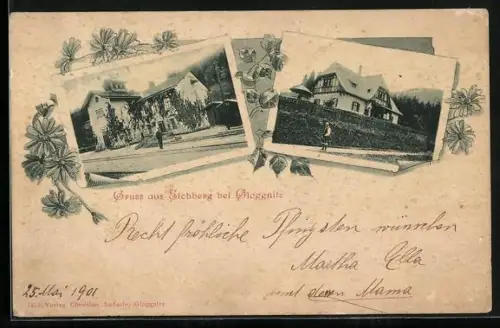 Gruss aus Eichberg bei Gloggnitz
Recht fröhliche Pfingsten wünschen
Martha Ella
und deren Mama
25. Mai 1901
Verlag Christian Gloggnitz